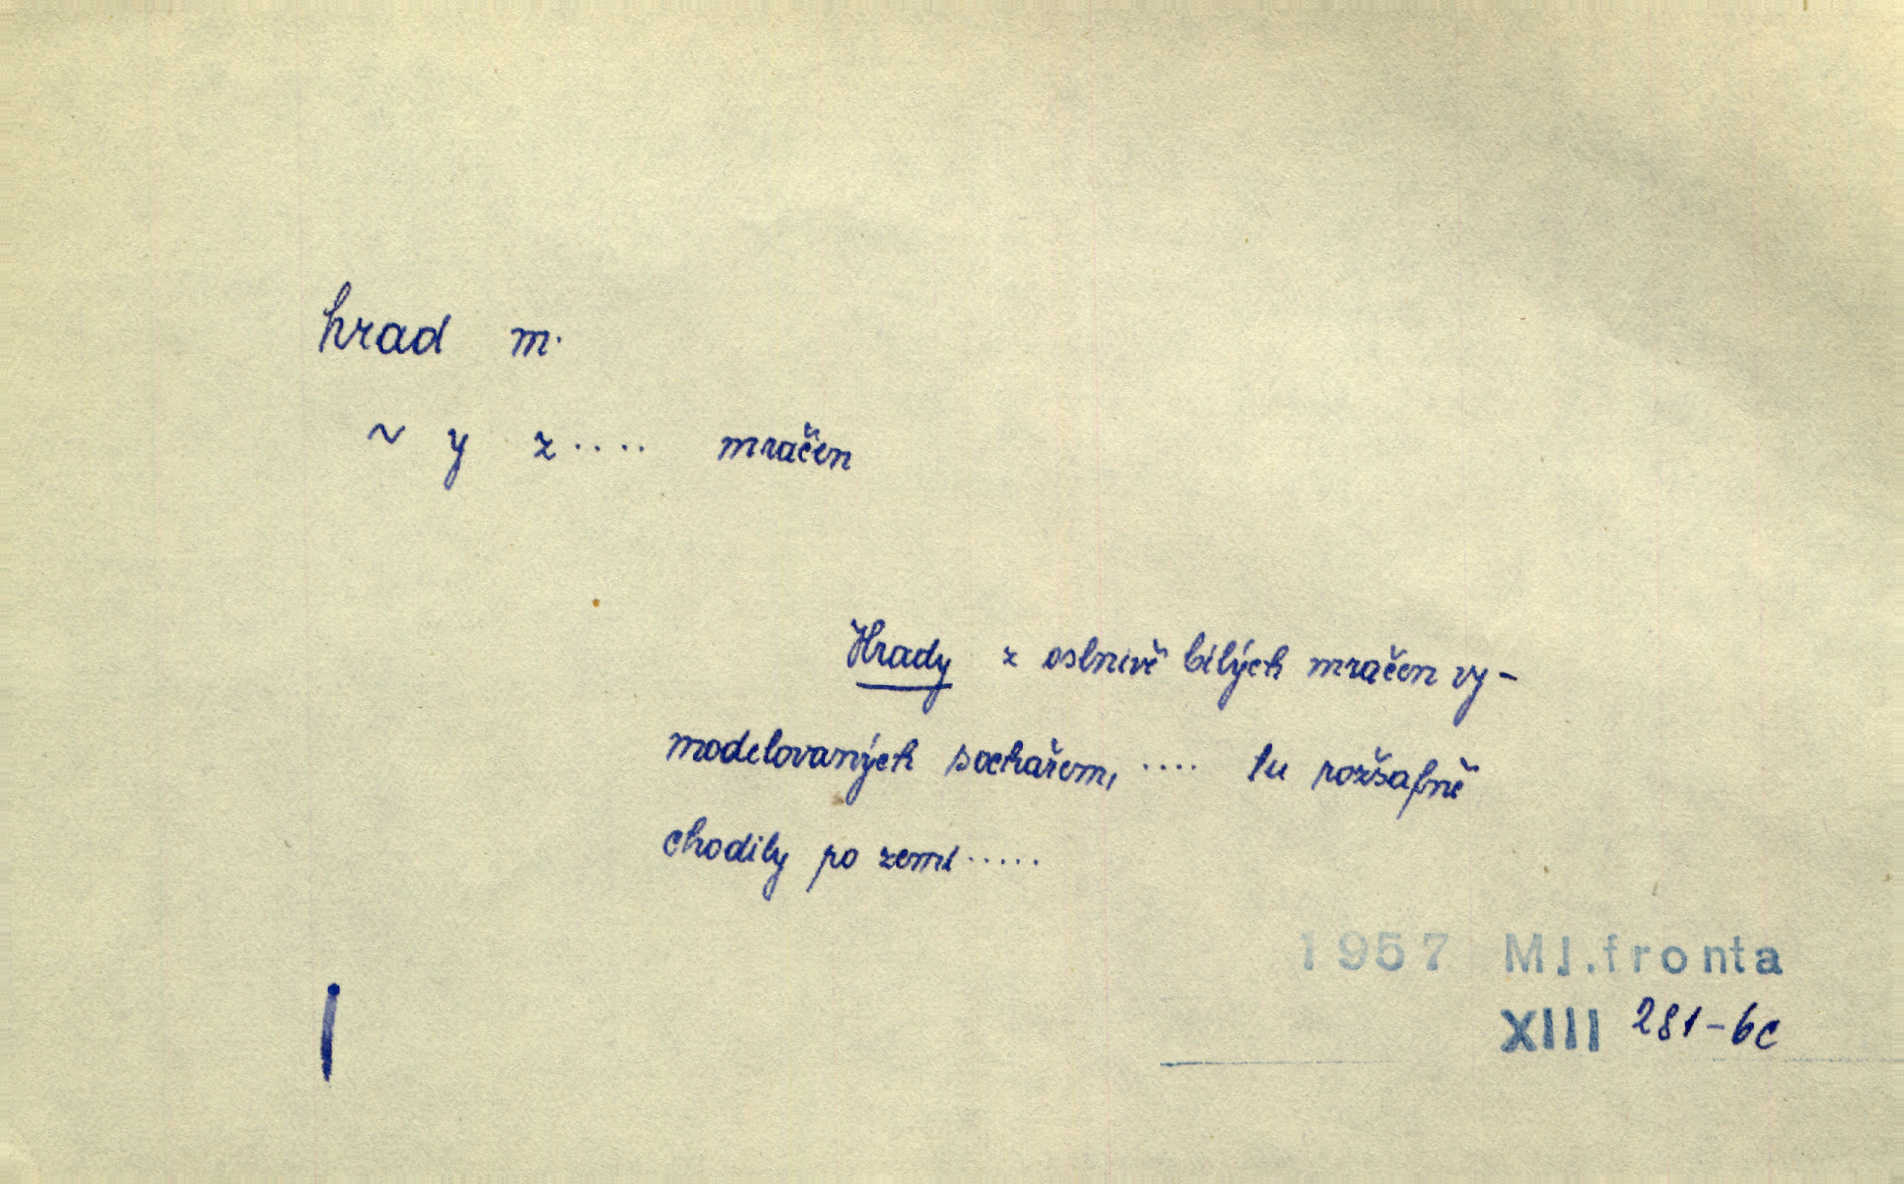 hrad m.
~ y z.... mračen
Hrady z oslnivě bílých mračen vy-
modelovaných sochařem, .... tu rozšafně
chodily po zemi.....
1957 Ml.fronta
XIII 281-6c